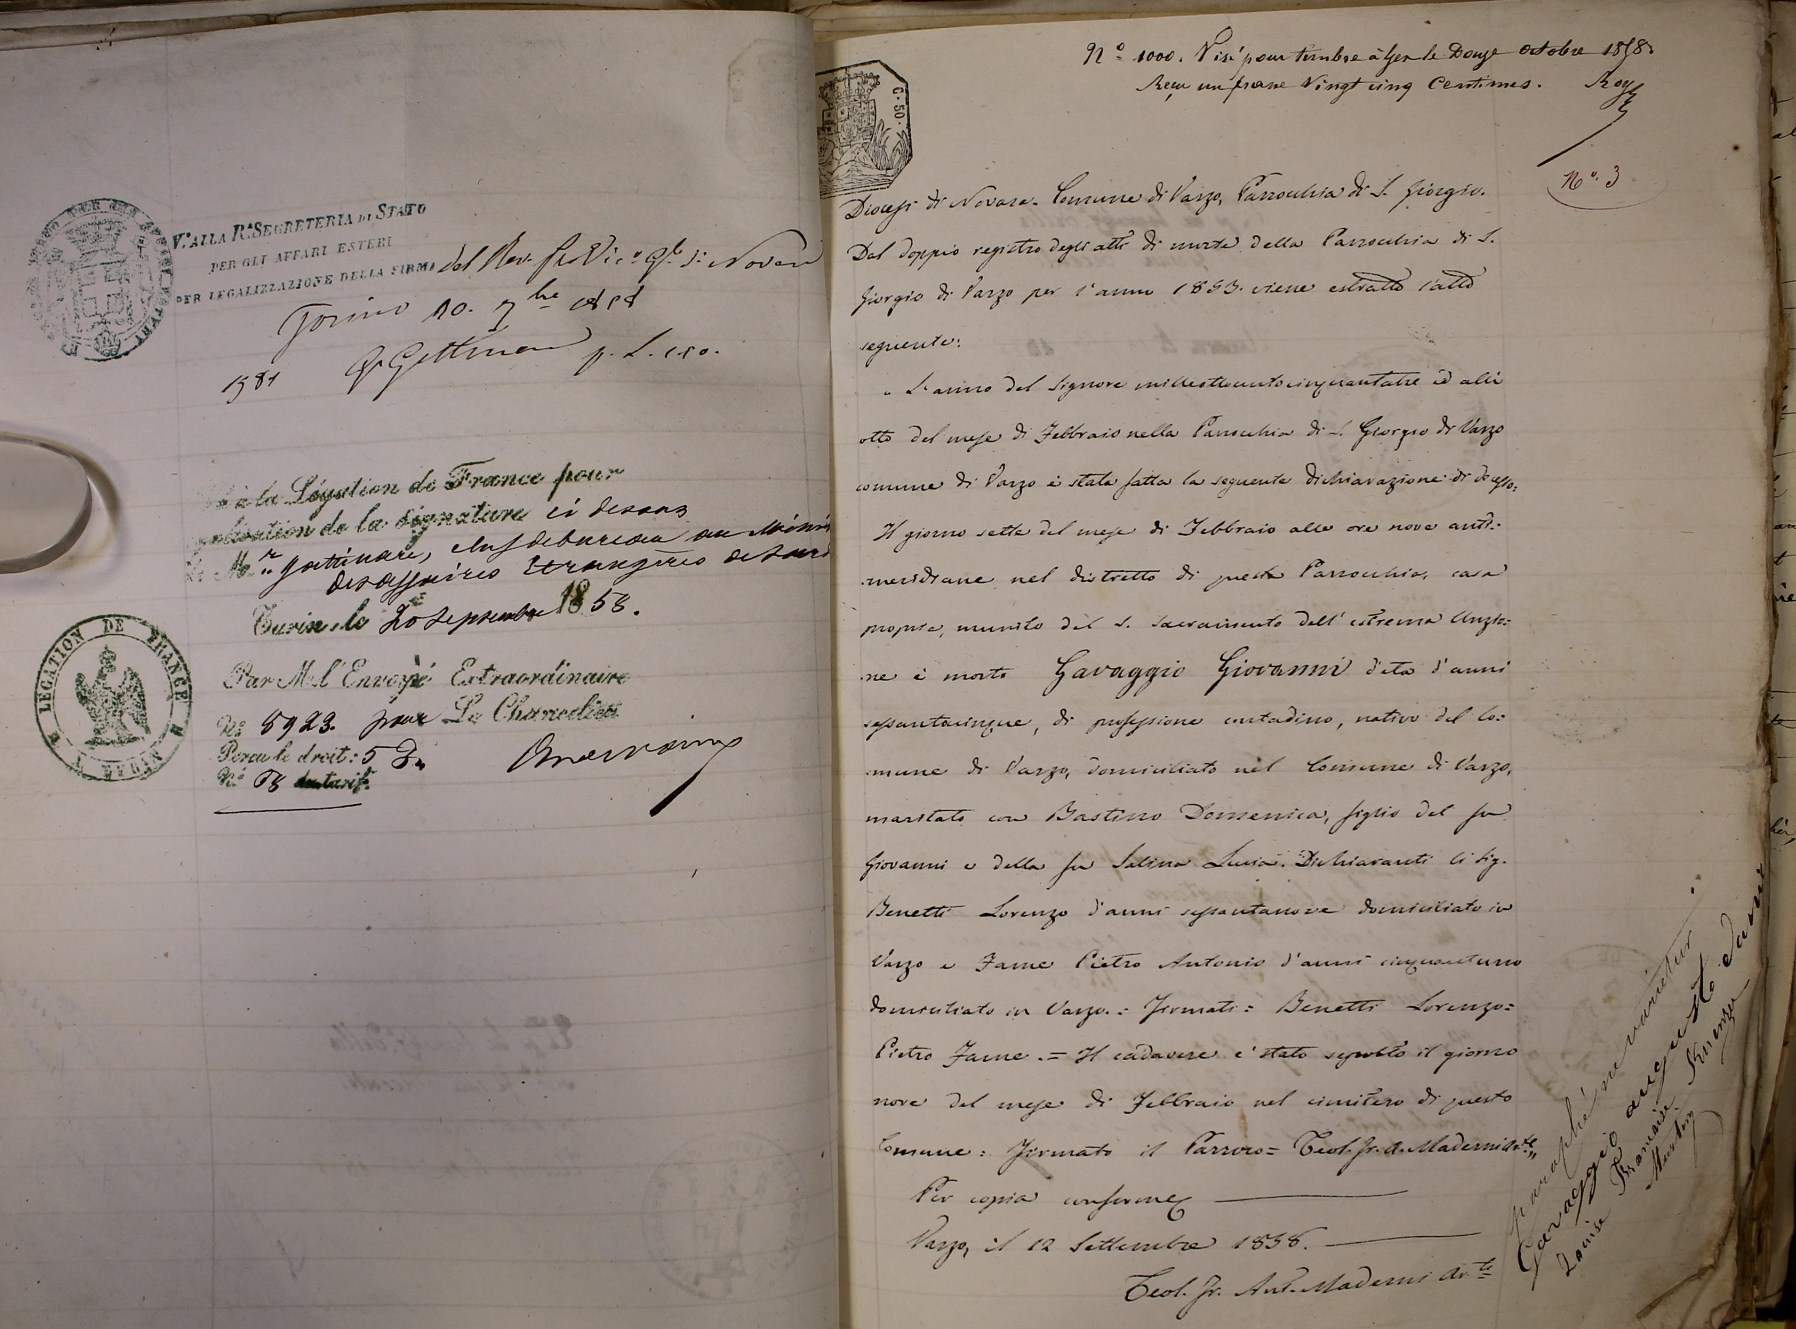 V.° ALLA R.ª SEGRETERIA DI STATO
PER GLI AFFARI ESTERI
PER LEGALIZZAZIONE DELLA FIRMA del Rev. Novara
Torino 10. 7bre 1858
1581
à la Légation de France pour
de la signature ci dessus
de Mr. Gattinara, au
des affaires étrangères de
Turin, le 20 Septembre 1858.
LEGATION DE FRANCE
Par M. l'Envoyé Extraordinaire
N° 5923. pour Le Chancelier
Percu le droit: 5
N° 68 du tarif.
N.° 1000. Visé pour timbre à Gex le Douze Octobre 1858.
Reçu un franc Vingt cinq Centimes. Roy
C. 50.
N°. 3
Diocesi di Novara. Comune di Varzo, Parrocchia di S. Giorgio.
Dal doppio registro degli atti di morte della Parrocchia di S.
Giorgio di Varzo per l'anno 1853. viene estratto l'atto
seguente:
„ L'anno del Signore milleottocentocinquantatre ed alli
otto del mese di Febbraio nella Parrocchia di S. Giorgio di Varzo
comune di Varzo è stata fatta la seguente dichiarazione di decesso:
Il giorno sette del mese di Febbraio alle ore nove anti:
meridiane nel distretto di questa Parrocchia, casa
propria, munito del S. Sacramento dell'estrema Unzio:
ne è morto Gavaggio Giovanni d'età d'anni
sessantacinque, di professione contadino, nativo del Co:
mune di Varzo, domiciliato nel Comune di Varzo,
maritato con Bastino Domenica, figlio del fu
Giovanni e della fu Salina Lucia. Dichiaranti li Sig.
Benetti Lorenzo d'anni sessantanove domiciliato in
Varzo e Jaime Pietro Antonio d'anni cinquantuno
domiciliato in Varzo. = Firmati = Benetti Lorenzo =
Pietro Jaime. = Il cadavere è stato sepolto il giorno
nove del mese di Febbraio nel cimitero di questo
Comune: Firmato il Parroco = Teol. Fr. A. Maderni Arte„
Per copia conforme
Varzo, il 12 Settembre 1858.
Teol. Fr. Ant. Maderni Arte
paraphé ne varietur
Gavaggio augusto
Louise Françoise
Martin